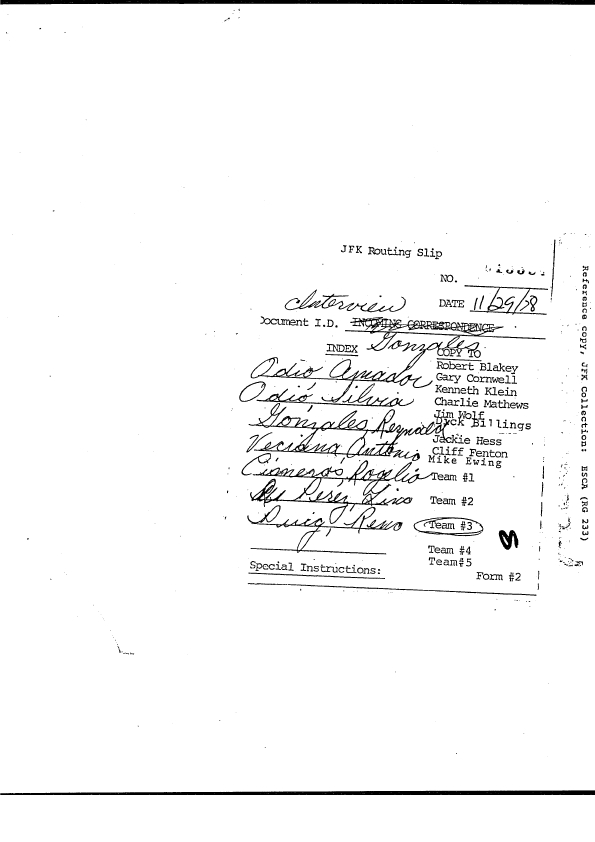 JFK Routing Slip
NO.
Interview
DATE 11/29/78
Document I.D. INCOMING CORRESPONDENCE
Gonzales
INDEX
COPY TO
Robert Blakey
Odio, Amador
Gary Cornwell
Kenneth Klein
Odio, Silvia
Charlie Mathews
Jim Wolf
Gonzales, Reynald
Dick Billings
Jackie Hess
Veciana, Antonio
Cliff Fenton
Mike Ewing
Cisneros, Rogelio
Team #1
Perez, Lino
Team #2
Puig, Reno
Team #3
Team #4
Team#5
Special Instructions:
Form #2
Reference copy, JFK Collection: HSCA (RG 233)